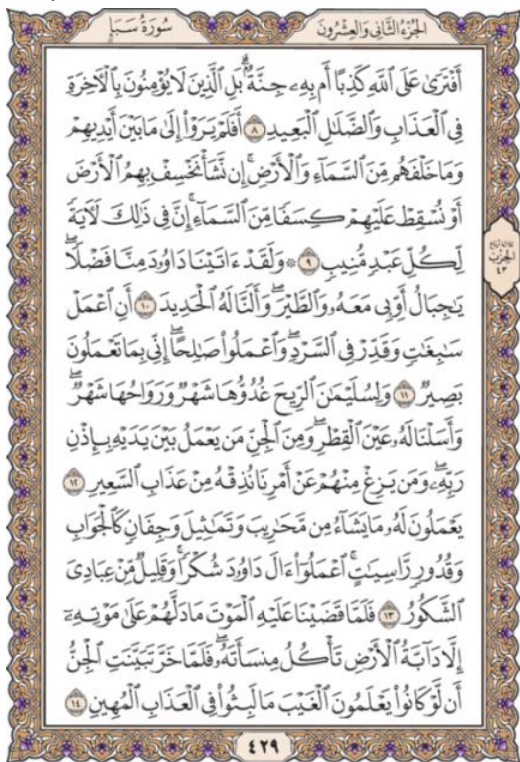 سُورَةُ سَبَإٍ الجُزْءُ الثَّانِي وَالعِشْرُونَ
أَفْتَرَىٰ عَلَى ٱللَّهِ كَذِبًا أَم بِهِۦ جِنَّةٌۢ ۗ بَلِ ٱلَّذِينَ لَا يُؤْمِنُونَ بِٱلْـَٔاخِرَةِ
فِى ٱلْعَذَابِ وَٱلضَّلَـٰلِ ٱلْبَعِيدِ ٨ أَفَلَمْ يَرَوْا۟ إِلَىٰ مَا بَيْنَ أَيْدِيهِمْ
وَمَا خَلْفَهُم مِّنَ ٱلسَّمَآءِ وَٱلْأَرْضِ ۚ إِن نَّشَأْ نَخْسِفْ بِهِمُ ٱلْأَرْضَ
أَوْ نُسْقِطْ عَلَيْهِمْ كِسَفًا مِّنَ ٱلسَّمَآءِ ۚ إِنَّ فِى ذَٰلِكَ لَـَٔايَةً
لِّكُلِّ عَبْدٍ مُّنِيبٍ ٩ ۞ وَلَقَدْ ءَاتَيْنَا دَاوُۥدَ مِنَّا فَضْلًا ۖ
يَـٰجِبَالُ أَوِّبِى مَعَهُۥ وَٱلطَّيْرَ ۖ وَأَلَنَّا لَهُ ٱلْحَدِيدَ ١٠ أَنِ ٱعْمَلْ
سَـٰبِغَـٰتٍ وَقَدِّرْ فِى ٱلسَّرْدِ ۖ وَٱعْمَلُوا۟ صَـٰلِحًا ۖ إِنِّى بِمَا تَعْمَلُونَ
بَصِيرٌ ١١ وَلِسُلَيْمَـٰنَ ٱلرِّيحَ غُدُوُّهَا شَهْرٌ وَرَوَاحُهَا شَهْرٌ ۖ
وَأَسَلْنَا لَهُۥ عَيْنَ ٱلْقِطْرِ ۖ وَمِنَ ٱلْجِنِّ مَن يَعْمَلُ بَيْنَ يَدَيْهِ بِإِذْنِ
رَبِّهِۦ ۖ وَمَن يَزِغْ مِنْهُمْ عَنْ أَمْرِنَا نُذِقْهُ مِنْ عَذَابِ ٱلسَّعِيرِ ١٢
يَعْمَلُونَ لَهُۥ مَا يَشَآءُ مِن مَّحَـٰرِيبَ وَتَمَـٰثِيلَ وَجِفَانٍ كَٱلْجَوَابِ
وَقُدُورٍ رَّاسِيَـٰتٍ ۚ ٱعْمَلُوٓا۟ ءَالَ دَاوُۥدَ شُكْرًا ۚ وَقَلِيلٌ مِّنْ عِبَادِىَ
ٱلشَّكُورُ ١٣ فَلَمَّا قَضَيْنَا عَلَيْهِ ٱلْمَوْتَ مَا دَلَّهُمْ عَلَىٰ مَوْتِهِۦٓ
إِلَّا دَآبَّةُ ٱلْأَرْضِ تَأْكُلُ مِنسَأَتَهُۥ ۖ فَلَمَّا خَرَّ تَبَيَّنَتِ ٱلْجِنُّ
أَن لَّوْ كَانُوا۟ يَعْلَمُونَ ٱلْغَيْبَ مَا لَبِثُوا۟ فِى ٱلْعَذَابِ ٱلْمُهِينِ ١٤
الحِزْبُ
٤٣
٤٢٩